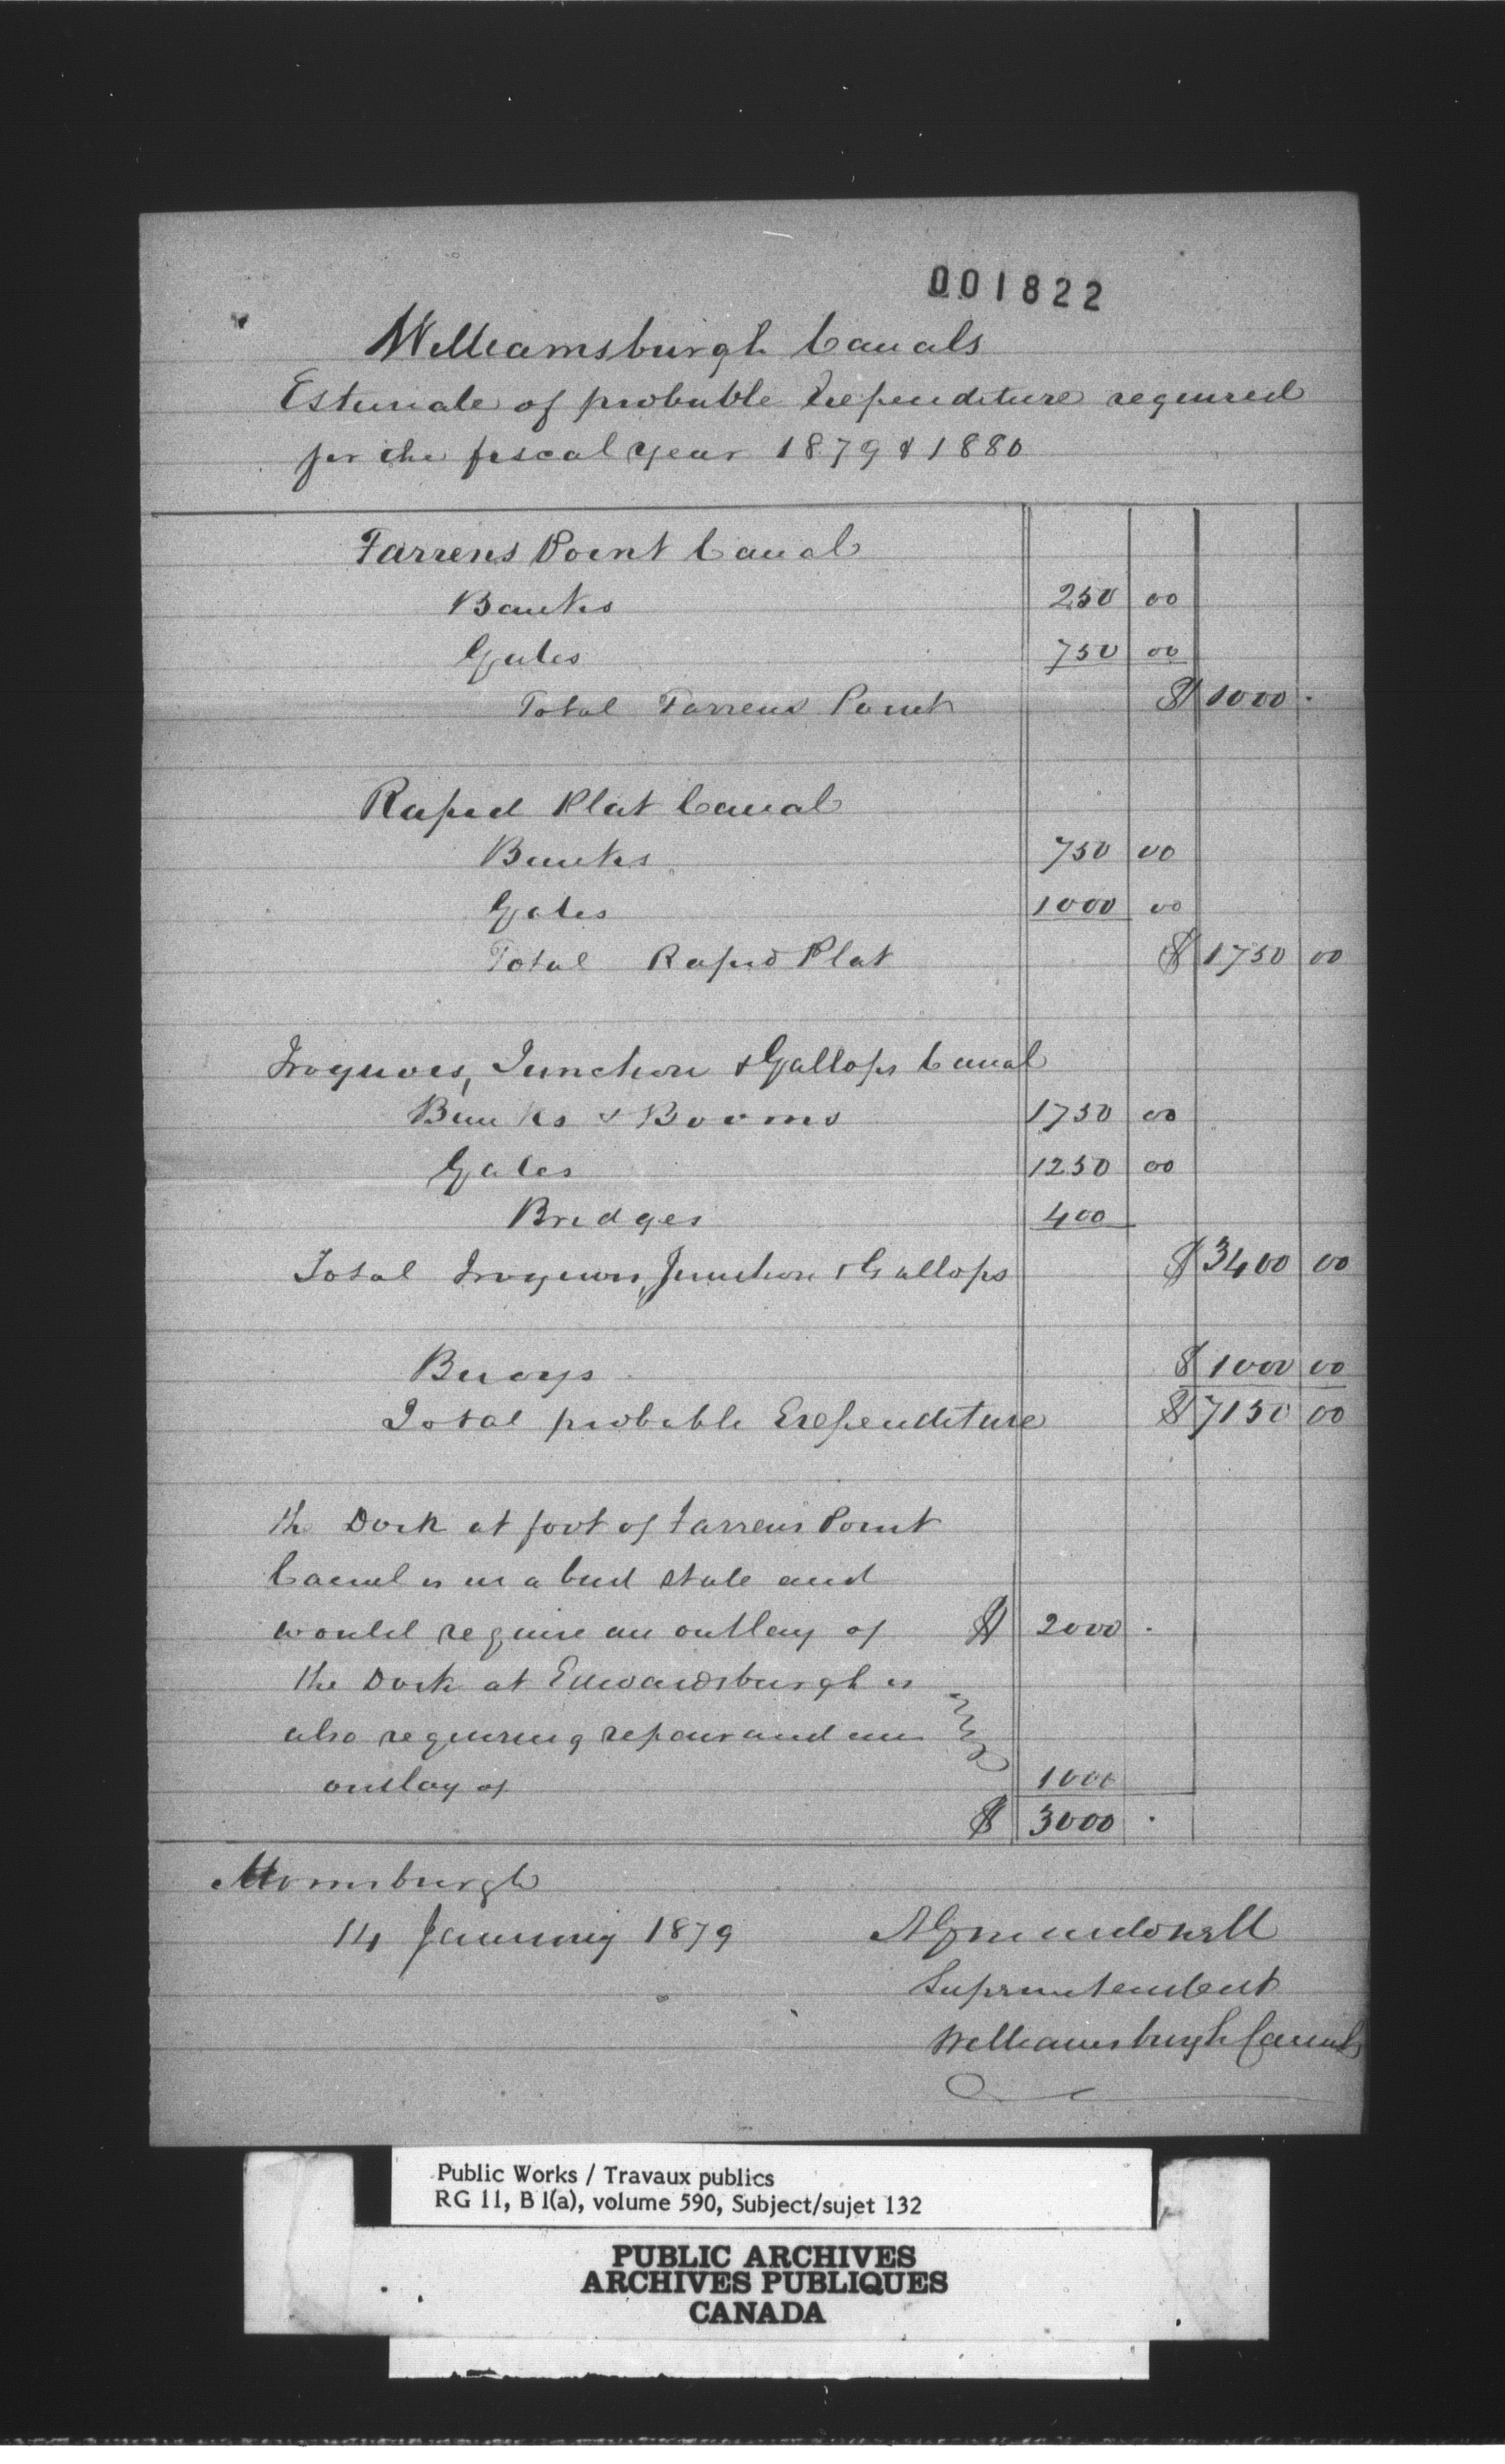 001822
Williamsburgh Canals
Estimate of probable Expenditure required
for the fiscal year 1879 & 1880
Farrens Point Canal
Banks 250 00
Gates 750 00
Total Farrens Point $ 1000 .
Rapid Plat Canal
Banks 750 00
Gates 1000 00
Total Rapid Plat $ 1750 00
Iroquois, Junction & Gallops Canal
Banks & Booms 1750 00
Gates 1250 00
Bridges 400
Total Iroquois, Junction & Gallops $ 3400 00
Buoys $ 1000 00
Total probable Expenditure $ 7150 00
the Dock at foot of Farrens Point
Canal is in a bad state and
would require an outlay of $ 2000 .
the Dock at Edwardsburgh is
also requiring repair and an
outlay of 1000
$ 3000 .
Morrisburgh
14 January 1879
AGMacdonell
Superintendent
Williamsburgh Canals
Public Works / Travaux publics
RG 11, B 1(a), volume 590, Subject/sujet 132
PUBLIC ARCHIVES
ARCHIVES PUBLIQUES
CANADA